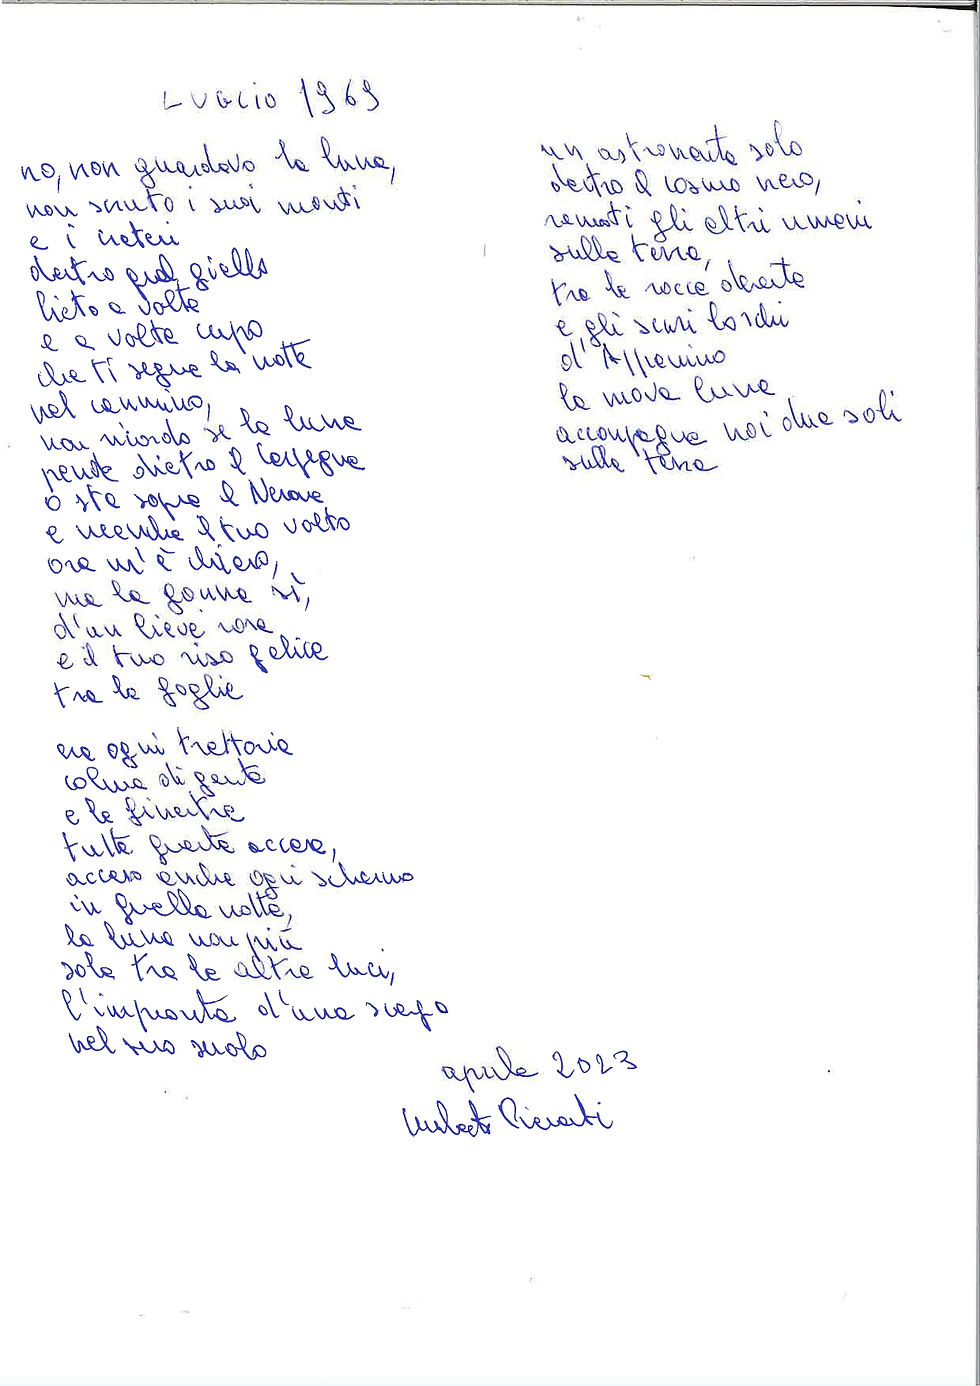 LUGLIO 1969
no, non guardavo la luna,
non scruto i suoi monti
e i crateri
dentro quel giallo
lieto a volte
e a volte cupo
che ti segue la notte
nel cammino,
non ricordo se la luna
pende dietro il Carpegna
o sta sopra il Nerone
e neanche il tuo volto
ora m'è chiaro,
ma la gonna sì,
d'un lieve rosa
e il tuo riso felice
tra le foglie
era ogni trattoria
colma di gente
e le finestre
tutte quante accese,
acceso anche ogni schermo
in quella notte,
la luna non più
sola tra le altre luci,
l'impronta d'una scarpa
nel suo suolo
un astronauta solo
dentro il cosmo nero,
remoti gli altri umani
sulla terra,
tra le rocce deserte
e gli scuri boschi
d'Appennino
la nuova luna
accompagna noi due soli
sulla terra
aprile 2023
Umberto Piersanti